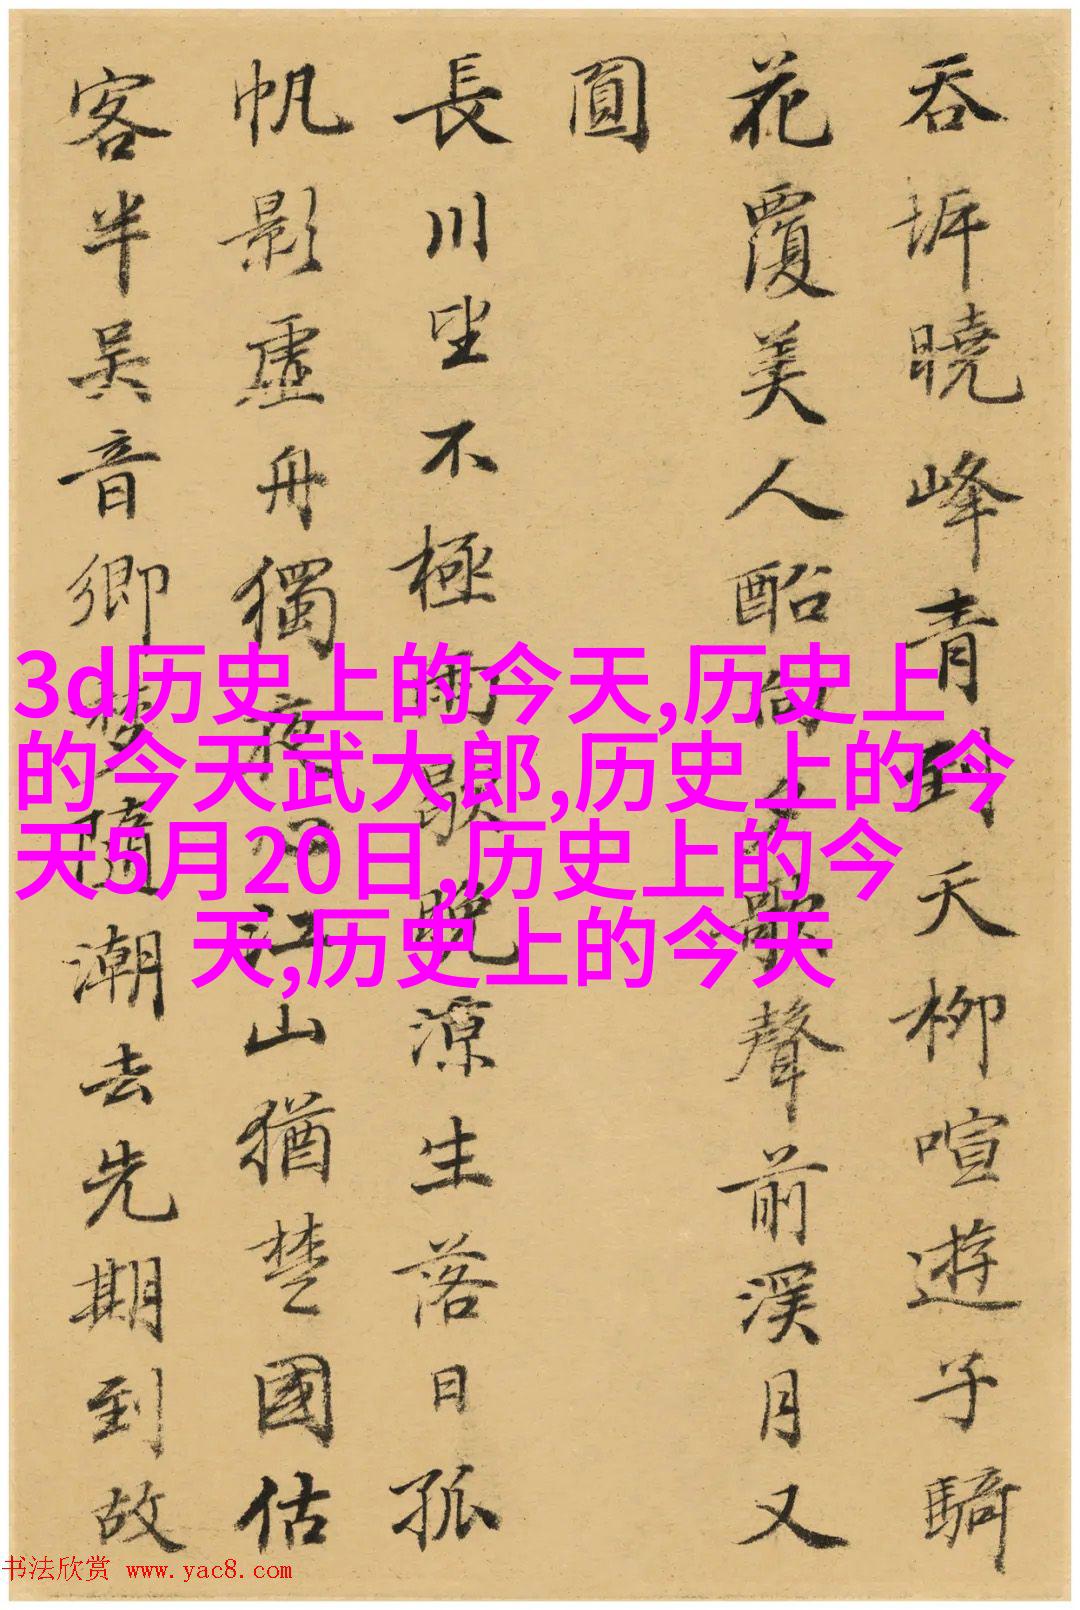 吞坼曉峰青到天柳喧遊子騎
花覆美人向夕歌聲前溪月又
圓
長川坐不極雨歇晚涼生落日孤
帆影虛舟獨夜心江山猶楚國估
客半吳音鄉夢隨潮去先期到故
3d历史上的今天,历史上
的今天武大郎,历史上的今
天5月20日,历史上的今
天,历史上的今天
书法欣赏 www.yac8.com